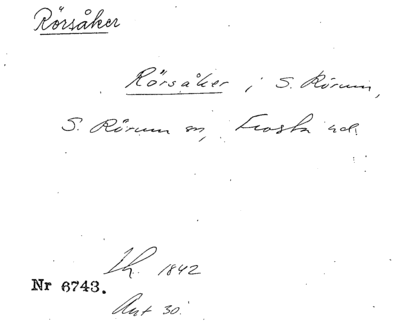 Rörsåker
Rörsåker i S. Rörum,
S. Rörum sn, Frosta hd.
Lh. 1842
Nr 6743.
Avt 30.